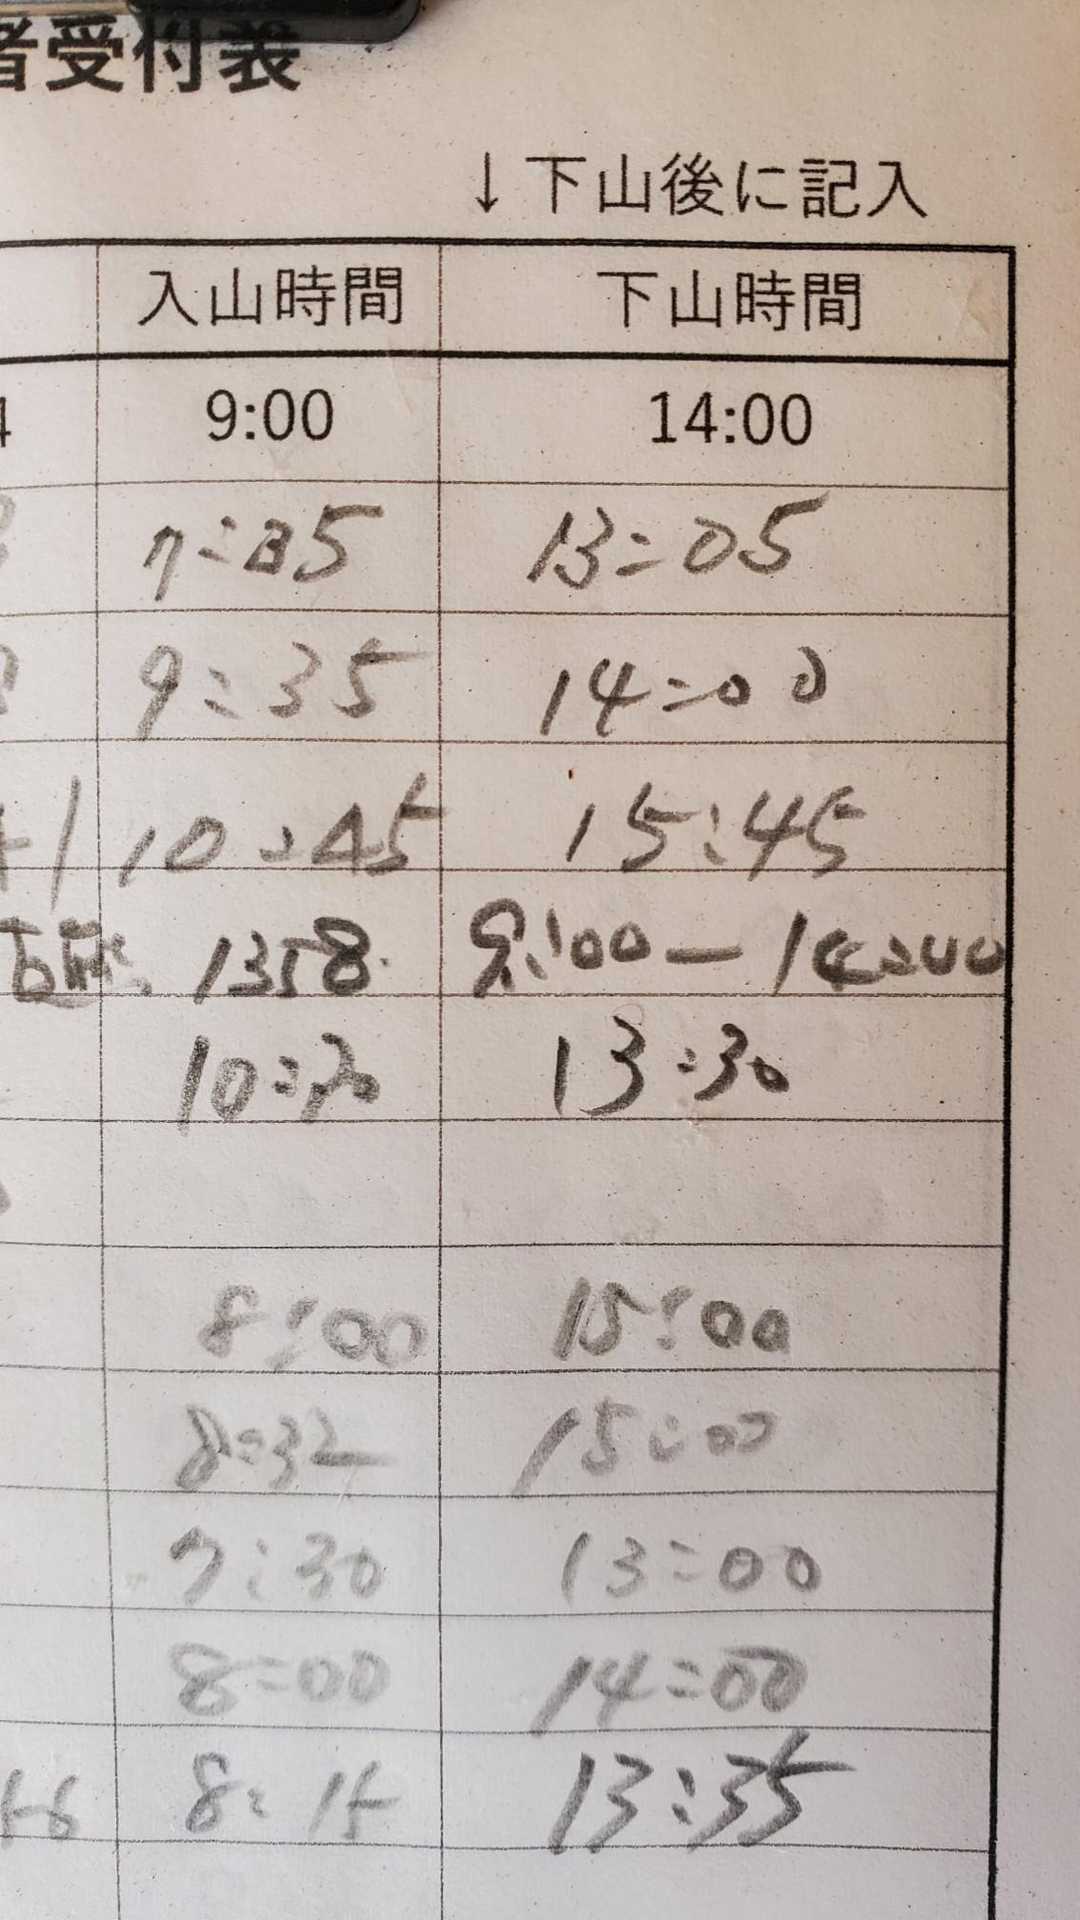 者受付表
↓下山後に記入
入山時間 下山時間
4 9:00 14:00
7:05 13:05
9:35 14:00
10:45 15:45
1358 9:00-14:00
10:30 13:30
8:00 15:00
8:32 15:00
7:30 13:00
8:00 14:00
8:15 13:35